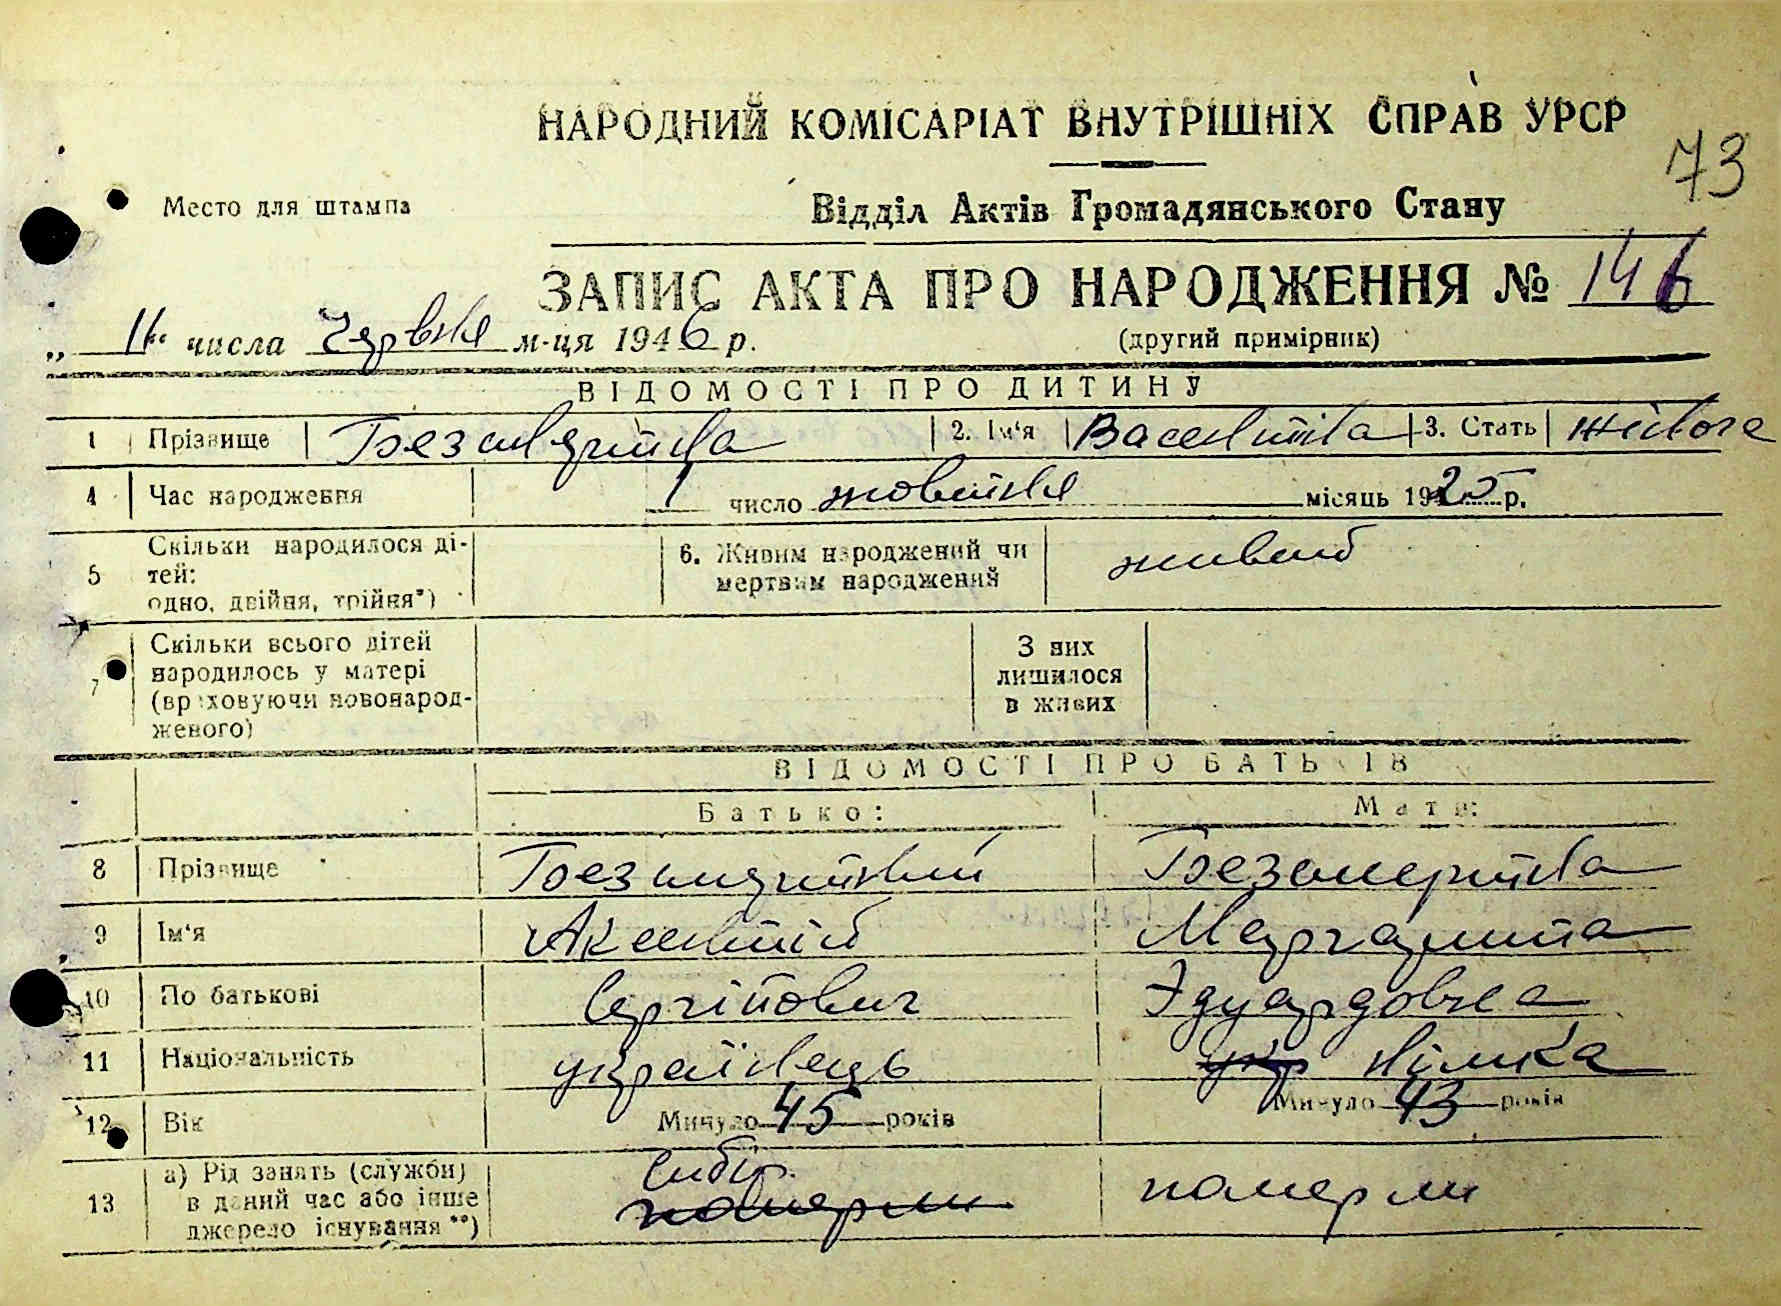 НАРОДНИЙ КОМІСАРІАТ ВНУТРІШНІХ СПРАВ УРСР
73
Место для штампа
Відділ Актів Громадянського Стану
ЗАПИС АКТА ПРО НАРОДЖЕННЯ № 146
„ 11 “ числа червня м-ця 1946 р.
(другий примірник)
ВІДОМОСТІ ПРО ДИТИНУ
1 Прізвище Безсмертна 2. Ім‘я Валентина 3. Стать жіноча
4 Час народження 1 число жовтня місяць 1925 р.
5 Скільки народилося ді-
тей:
одно, двійня, трійня*)
6. Живим народжений чи
мертвим народжений
живий
7 Скільки всього дітей
народилось у матері
(враховуючи новонарод-
женого)
З них
лишилося
в живих
ВІДОМОСТІ ПРО БАТЬКІВ
Батько: Мати:
8 Прізвище Безсмертний Безсмертна
9 Ім‘я Маргарита
10 По батькові Сергійович Эдуардовна
11 Національність українець укр німка
12 Вік Минуло 45 років Минуло 43 років
13 а) Рід занять (служби)
в даний час або інше
джерело існування **)
Сибір.
померли померли